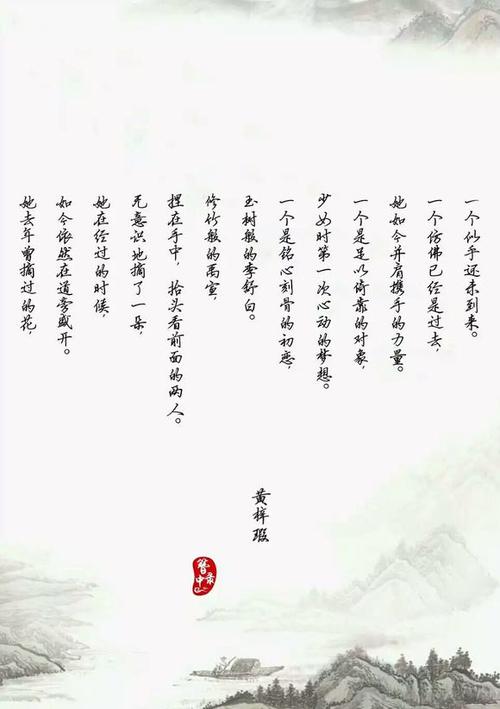 她去年曾摘过的花，
如今依然在道旁盛开。
她在经过的时候，
无意识地摘了一朵，
捏在手中，抬头看前面的两人。
修竹般的禹宣，
玉树般的李舒白。
一个是铭心刻骨的初恋，
少女时第一次心动的梦想。
一个是足以倚靠的对象，
她如今并肩携手的力量。
一个仿佛已经是过去，
一个似乎还未到来。
黄梓瑕
簪中录